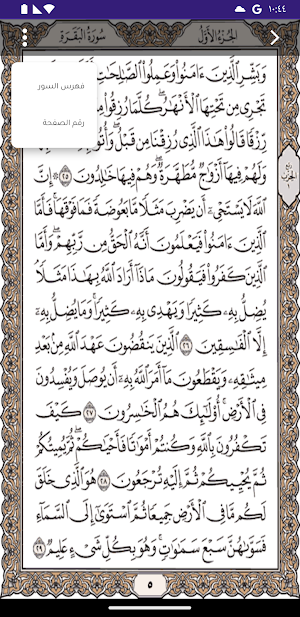 ١٠:٤٤
سُورَةُ البَقَرَةِ
الجُزْءُ الأَوَّلُ
فهرس السور
رقم الصفحة
وَبَشِّرِ ٱلَّذِينَ ءَامَنُوا۟ وَعَمِلُوا۟ ٱلصَّـٰلِحَـٰتِ
تَجْرِى مِن تَحْتِهَا ٱلْأَنْهَـٰرُ ۖ كُلَّمَا رُزِقُوا۟
رِّزْقًا ۙ قَالُوا۟ هَـٰذَا ٱلَّذِى رُزِقْنَا مِن قَبْلُ ۖ وَأُتُوا۟
وَلَهُمْ فِيهَآ أَزْوَٰجٌ مُّطَهَّرَةٌ ۖ وَهُمْ فِيهَا خَـٰلِدُونَ ٢٥ ۞ إِنَّ
ٱللَّهَ لَا يَسْتَحْىِۦٓ أَن يَضْرِبَ مَثَلًا مَّا بَعُوضَةً فَمَا فَوْقَهَا ۚ فَأَمَّا
ٱلَّذِينَ ءَامَنُوا۟ فَيَعْلَمُونَ أَنَّهُ ٱلْحَقُّ مِن رَّبِّهِمْ ۖ وَأَمَّا
ٱلَّذِينَ كَفَرُوا۟ فَيَقُولُونَ مَاذَآ أَرَادَ ٱللَّهُ بِهَـٰذَا مَثَلًا ۘ
يُضِلُّ بِهِۦ كَثِيرًا وَيَهْدِى بِهِۦ كَثِيرًا ۚ وَمَا يُضِلُّ بِهِۦٓ
إِلَّا ٱلْفَـٰسِقِينَ ٢٦ ٱلَّذِينَ يَنقُضُونَ عَهْدَ ٱللَّهِ مِنۢ بَعْدِ
مِيثَـٰقِهِۦ وَيَقْطَعُونَ مَآ أَمَرَ ٱللَّهُ بِهِۦٓ أَن يُوصَلَ وَيُفْسِدُونَ
فِى ٱلْأَرْضِ ۚ أُو۟لَـٰٓئِكَ هُمُ ٱلْخَـٰسِرُونَ ٢٧ كَيْفَ
تَكْفُرُونَ بِٱللَّهِ وَكُنتُمْ أَمْوَٰتًا فَأَحْيَـٰكُمْ ۖ ثُمَّ يُمِيتُكُمْ
ثُمَّ يُحْيِيكُمْ ثُمَّ إِلَيْهِ تُرْجَعُونَ ٢٨ هُوَ ٱلَّذِى خَلَقَ
لَكُم مَّا فِى ٱلْأَرْضِ جَمِيعًا ثُمَّ ٱسْتَوَىٰٓ إِلَى ٱلسَّمَآءِ
فَسَوَّىٰهُنَّ سَبْعَ سَمَـٰوَٰتٍ ۚ وَهُوَ بِكُلِّ شَىْءٍ عَلِيمٌ ٢٩
٥